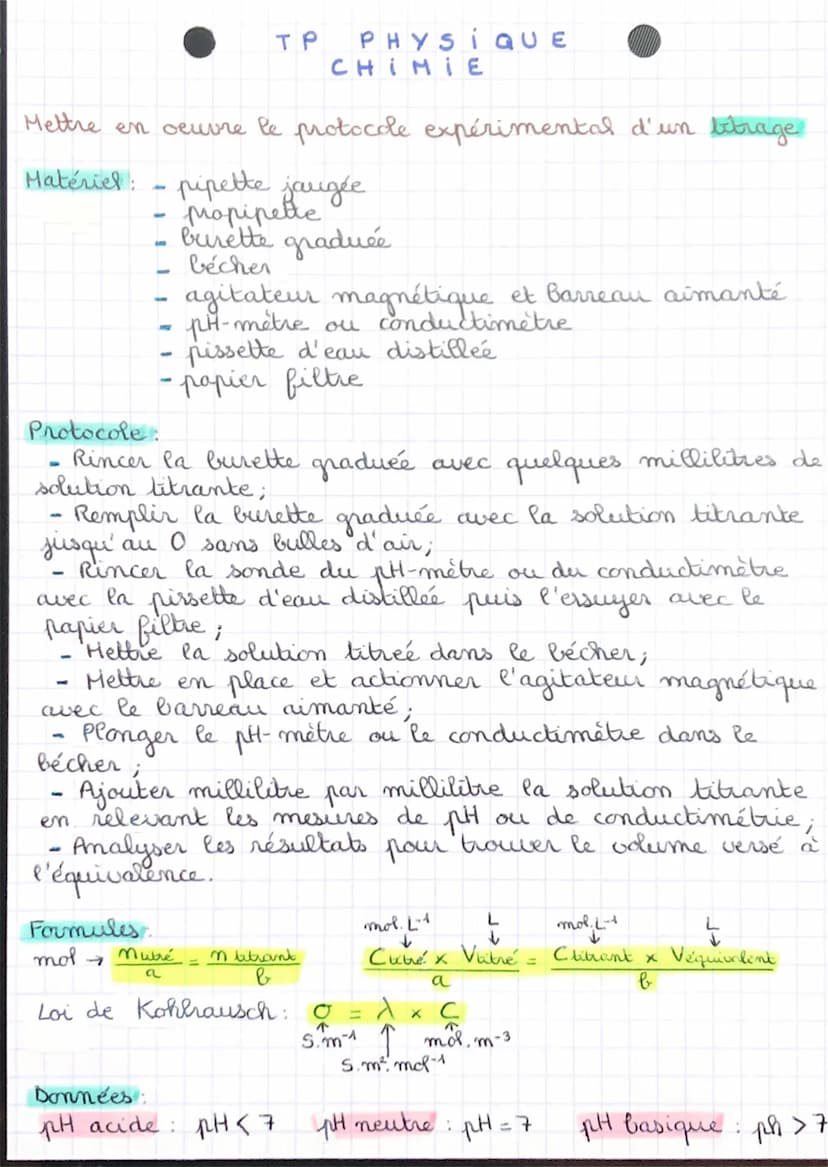 TP PHYSIQUE
CHIMIE
Mettre en oeuvre le protocole expérimental d'un titrage
Matériel : - pipette jaugée
- propipette
- burette graduée
- bécher
- agitateur magnétique et barreau aimanté
- pH-mètre ou conductimètre
- pissette d'eau distillée
- papier filtre
Protocole :
- Rincer la burette graduée avec quelques millilitres de
solution titrante ;
- Remplir la burette graduée avec la solution titrante
jusqu'au 0 sans bulles d'air ;
- Rincer la sonde du pH-mètre ou du conductimètre
avec la pissette d'eau distillée puis l'essuyer avec le
papier filtre ;
- Mettre la solution titreé dans le bécher ;
- Mettre en place et actionner l'agitateur magnétique
avec le barreau aimanté ;
- Plonger le pH-mètre ou le conductimètre dans le
bécher ;
- Ajouter millilitre par millilitre la solution titrante
en relevant les mesures de pH ou de conductimétrie ;
- Analyser les résultats pour trouver le volume versé à
l'équivalence.
Formules :
mol.L⁻¹ L mol.L⁻¹ L
mol → n titré / a = n titrant / b C titré × V titré / a = C titrant × V équivalent / b
Loi de Kohlrausch : σ = λ × C
S.m⁻¹ mol.m⁻³
S.m².mol⁻¹
Données :
pH acide : pH < 7 pH neutre : pH = 7 pH basique : ph > 7